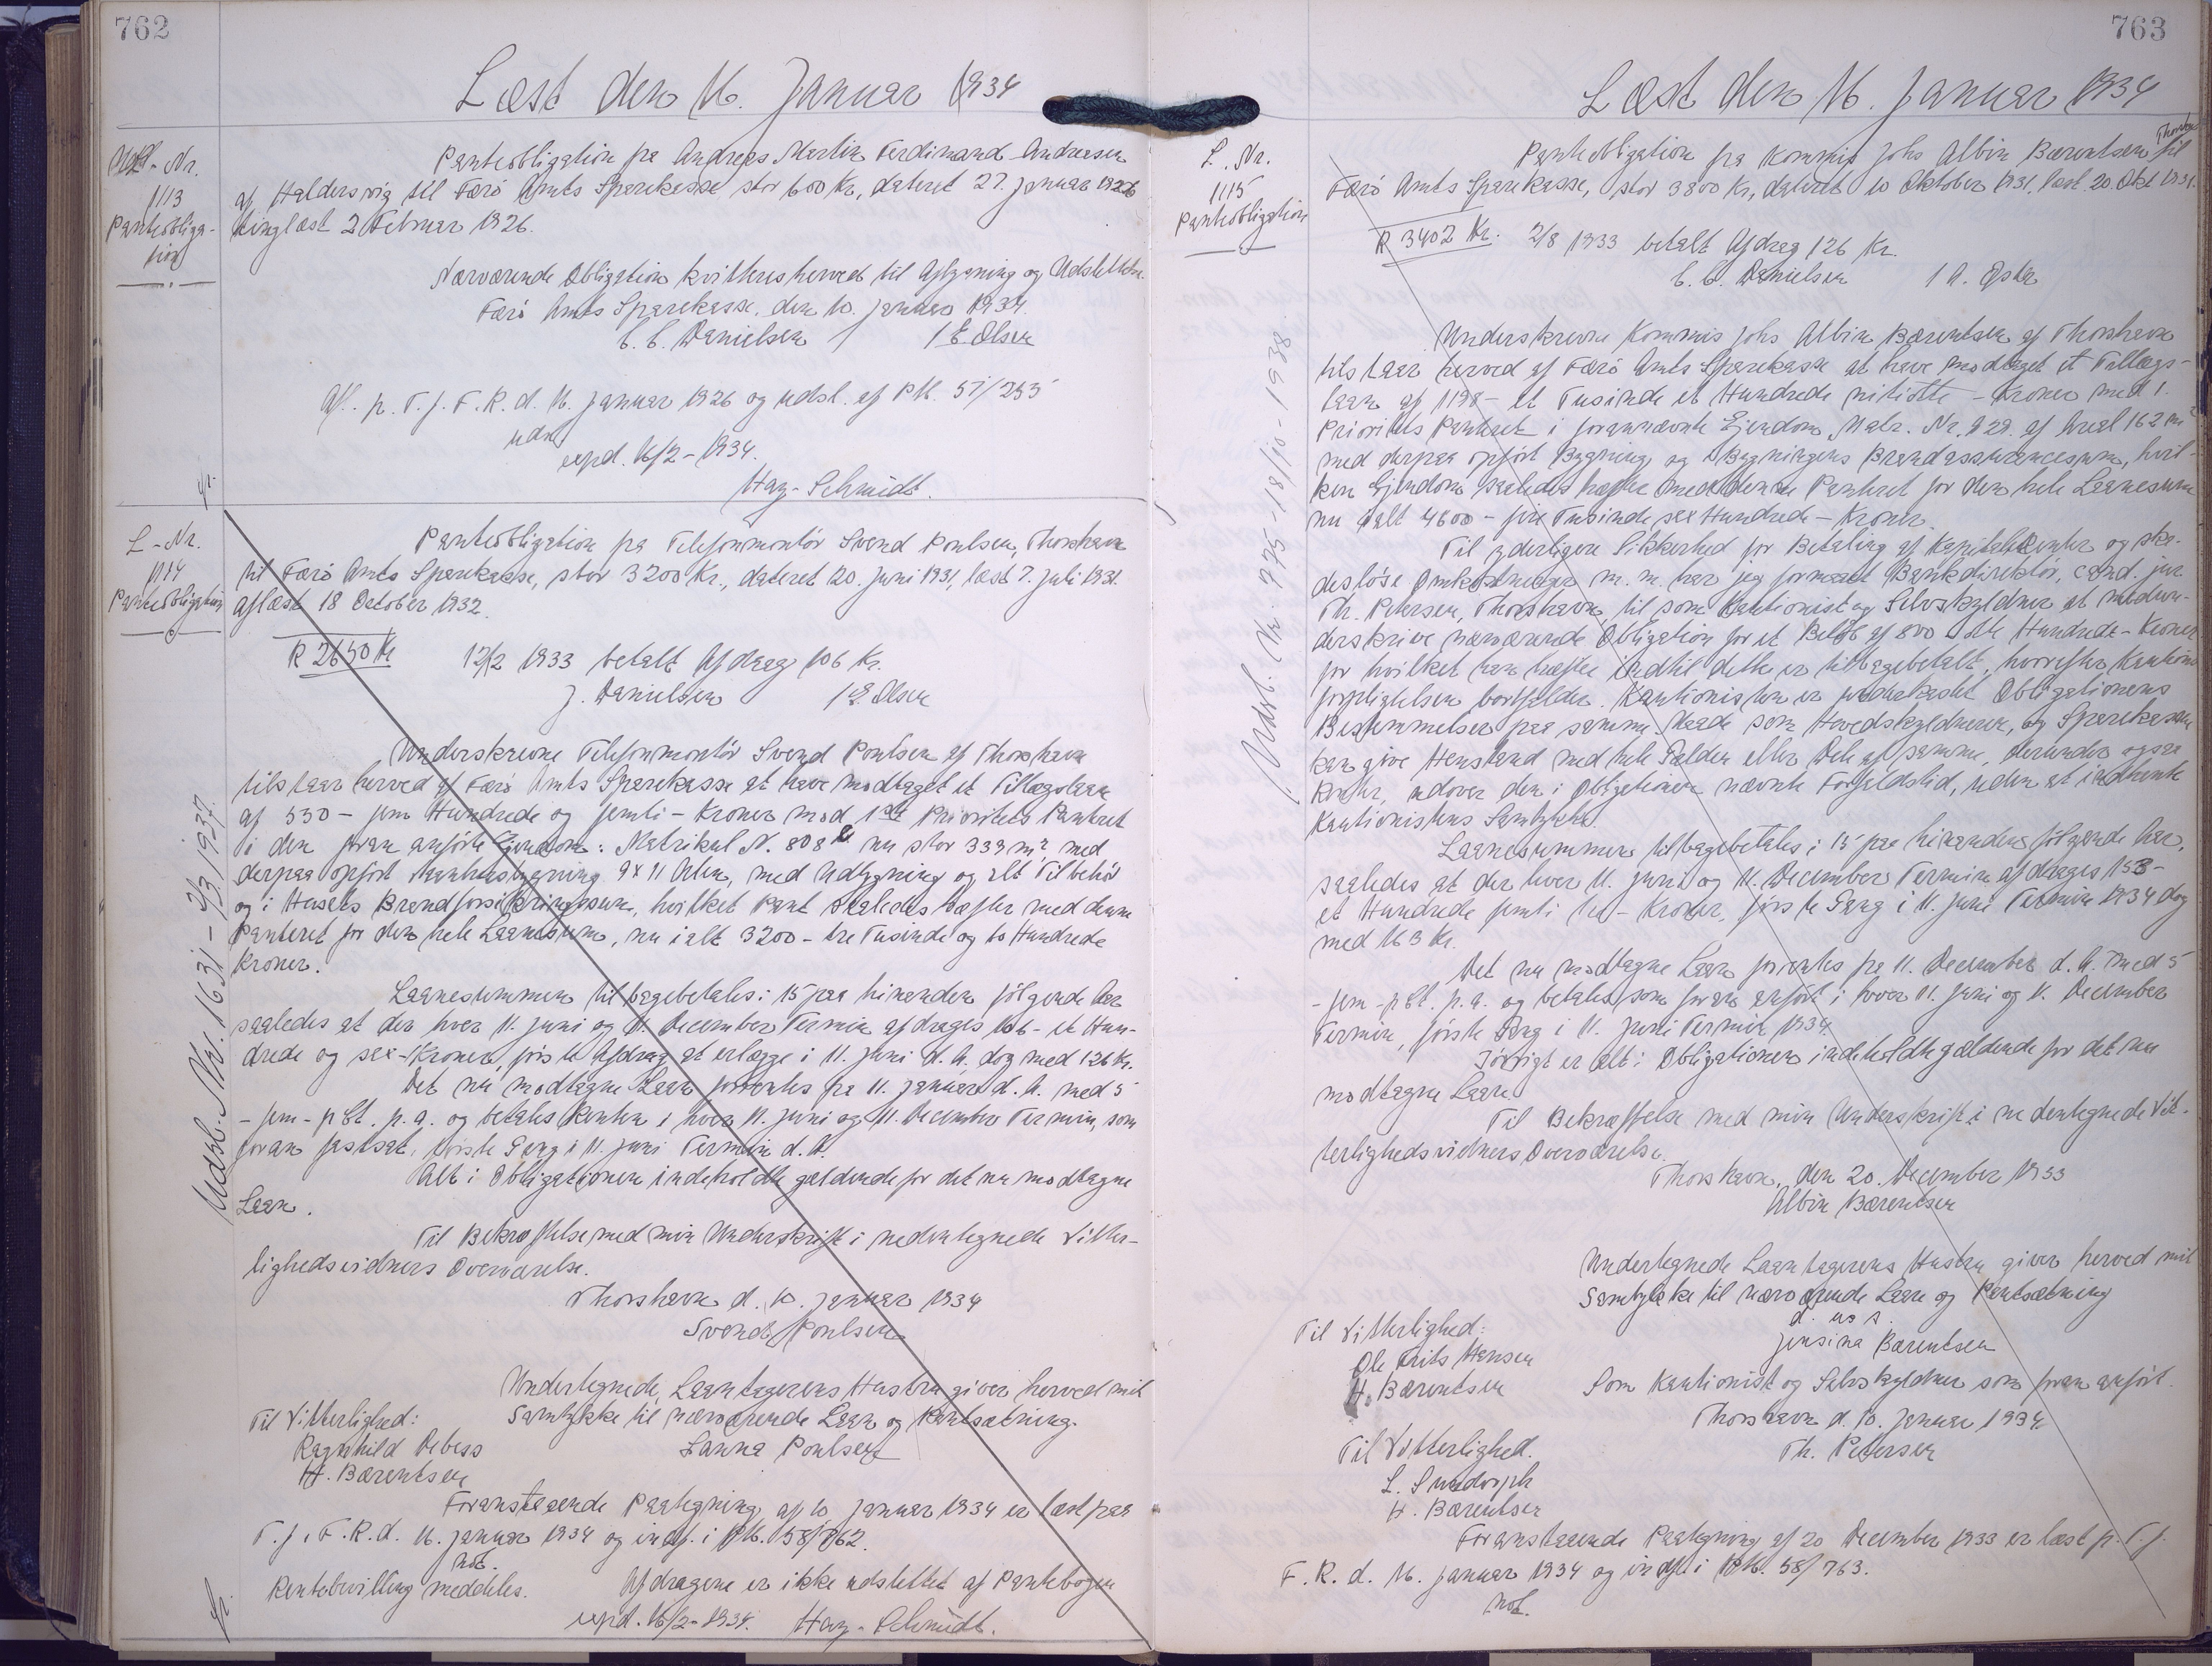 762
Læst den 16. Januar 1934
Udsl-Nr.
1113
Panteobliga-
tion
Panteobligation fra Andreas Martin Ferdinand Andreasen
af Haldersvig til Færö Amts Sparekasse stor 600 Kr, dateret 27. Januar 1926
tinglæst 2 Februar 1926.
Nærværende Obligation kvitteres herved til Aflysning og Udslettelse.
Færö Amts Sparekasse, den 10. Januar 1934.
C. C. Danielsen / E Olsen
Afl. p. T. j. F. R. d. 16. Januar 1926 og udsl. af PM. 57/255
udn
expd. 16/2-1934.
Hag-Schmidt.
L-Nr.
1114
Panteobligation
Panteobligation fra Telefonmontör Svend Poulsen, Thorshavn
til Færö Amts Sparekasse, stor 3200 Kr., dateret 20. Juni 1931, læst 7. Juli 1931.
aflæst 18 October 1932.
R 2650 Kr 12/12 1933 betalt Afdrag 106 Kr.
J. Danielsen / E. Olsen
Underskrevne Telefonmontör Svend Poulsen af Thorshavn
tilstaar herved af Færö Amts Sparekasse at have modtaget et Tillægslaan
af 550 - fem Hundrede og femti - Kroner mod 1ste Prioritets Panteret
i den foran anförte Ejendom: Matrikul N. 808 nu stor 333 m² med
derpaa opfört Vaaningsbygning 9 x 11 Alen, med Udbygning og alt Tilbehör
og i Husets Brandforsikringssum, hvilket Pant saaledes hæfter med denne
Panteret for den hele Laanesum, nu ialt 3200 - tre Tusinde og to Hundrede
Kroner.
Laanesummen tilbagebetales i 15 paa hinanden fölgende Aar
saaledes at der hver 11. Juni og 11. December Termin afdrages 106 - et Hun-
drede og sex - Kroner, förste Afdrag at erlægge i 11. Juni d. A. dog med 126 Kr.
Det nu modtagne Laan forrentes fra 11. Januar d. A. med 5
- fem - pCt. p. a. og betales Renten i hver 11. Juni og 11. December Termin, som
foran fastsat, förste Gang i 11. Juni Termin d. A.
Alt i Obligationen indeholdte gældende for det nu modtagne
Laan.
Til Bekræftelse med min Underskrift i nedentegnede Vitter-
lighedsvidners Overværelse.
Thorshavn d. 10. Januar 1934
Svend Poulsen
Undertegnede, Laantagerens Hustru giver herved mit
Samtykke til nærværende Laan og Pantsætning.
Sanna Poulsen
Til Vitterlighed:
Ragnhild Debess
H. Bærentsen
Foranstaaende Paategning af 10 Januar 1934 er læst paa
T. j. F. R. d. 16. Januar 1934 og indf. i PM. 58/762.
not.
Rentebevilling meddeles. Afdragene er ikke udslettet af Pantebogen
expd. 16/2-1934. Hag-Schmidt.
Udsl. Nr. 1631 - 2/3 1937.
763
Læst den 16. Januar 1934
L. Nr.
1115
Panteobligation
Panteobligation fra Kommis Johs Albin Bærentsen Thorshavn til
Færö Amts Sparekasse, stor 3800 Kr, dateret 10 Oktober 1931, læst 20. Okt 1931.
R 3402 Kr. 2/8 1933 betalt Afdrag 126 Kr.
C. C. Danielsen / A. Öster
Underskrevne Kommis Johs Albin Bærentsen af Thorshavn
tilstaar herved af Færö Amts Sparekasse at have modtaget et Tillægs-
laan af 1198 - et Tusinde et Hundrede nitiotte - Kroner med 1.
Prioritets Panteret i forannævnte Ejendom, Matr. Nr. 929. af Areal 162 m²
med derpaa opfört Bygning og i Bygningens Brandassurancesum, hvil-
ken Ejendom saaledes hæfter med denne Panteret for den hele Laanesum
nu ialt 4600 - fire Tusinde sex Hundrede - Kroner.
Til yderligere Sikkerhed for Betaling af Kapital, Renter og ska-
deslöse Omkostninger m. m. har jeg formaaet Bankdirektör, cand. jur.
Th. Petersen, Thorshavn, til som Kautionist og Selvskyldner at medun-
derskrive nærværende Obligation for et Belöb af 800 - otte Hundrede - Kroner
for hvilket han hæfter indtil dette er tilbagebetalt, hvorefter Kautions
forpligtelsen bortfalder. Kautionisten er underkastet Obligationens
Bestemmelser paa samme Maade som Hovedskyldneren, og Sparekassen
kan give Henstand med hele Gælden eller Dele af samme, derunder ogsaa
Renter, udover den i Obligationen nævnte Forfaldstid, uden at indhente
Kautionistens Samtykke.
Laanesummen tilbagebetales i 15 paa hinanden fölgende Aar,
saaledes at der hver 11. Juni og 11. December Termin afdrages 153 -
et Hundrede femti tre - Kroner, förste Gang i 11. Juni Termin 1934 dog
med 163 Kr.
Det nu modtagne Laan forrentes fra 11. December d. A. med 5
- fem - pCt. p. a. og betales som foran anfört i hver 11. Juni og 11. December
Termin, förste Gang i 11. Juni Termin 1934
Iövrigt er alt i Obligationen indeholdte gældende for det nu
modtagne Laan.
Til Bekræftelse med min Underskrift i nedentegnede Vit-
terlighedsvidners Overværelse.
Thorshavn, den 20. December 1933
Albin Bærentsen
Undertegnede Laantagerens Hustru giver herved mit
Samtykke til nærværende Laan og Pantsætning
d. u s.
Jensina Bærentsen
Til Vitterlighed:
Ole Frits Hansen
H. Bærentsen
Som Kautionist og Selvskyldner som foran anfört.
Thorshavn d. 10. Januar 1934
Th. Petersen
Til Vitterlighed.
L. Sundorph
H. Bærentsen
Foranstaaende Paategning af 20 December 1933 er læst p. T. j.
F. R. d. 16. Januar 1934 og indf. i PM. 58/763.
not.
Udsl. Nr. 775-18/10-1938.